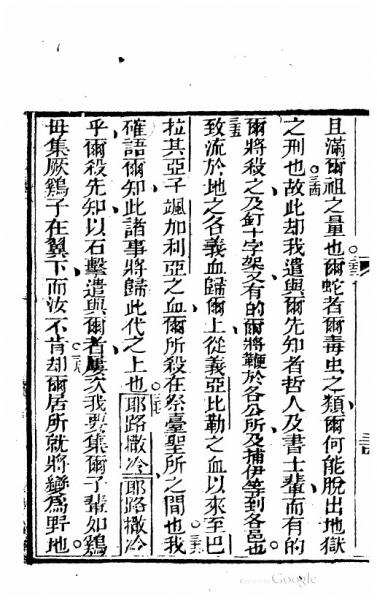 且滿爾祖之量也。三三爾蛇者爾毒虫之類爾何能脫出地獄
之刑也。三四故此却我遣與爾先知者哲人及書士輩而有的
爾將殺之及釘十字架又有的爾將鞭於各公所及捕伊等到各邑也。
三五致流於地之各義血歸爾上從義亞比勒之血以來至巴
拉其亞子颯加利亞之血爾所殺在祭臺聖所之間也。三六我
確語爾知此諸事將歸此代之上也。三七耶路撒冷耶路撒冷
乎爾殺先知以石擊遣與爾者屢次我要集爾子輩如鷄
毋集厥鷄子在翼下而汝不肯。三八却爾居所就將變爲野地
Google